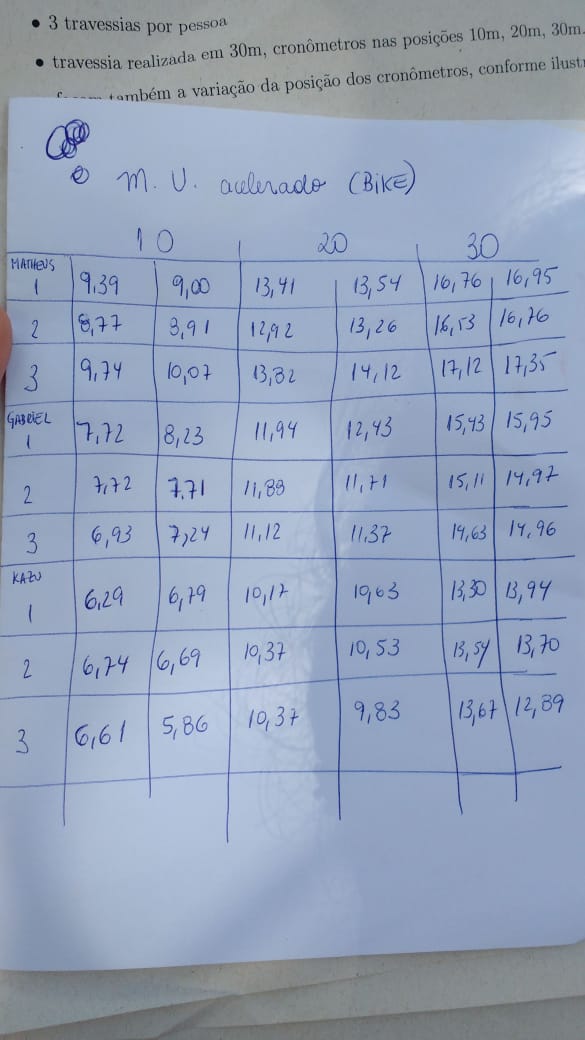 • 3 travessias por pessoa
• travessia realizada em 30m, cronômetros nas posições 10m, 20m, 30m.
também a variação da posição dos cronômetros, conforme ilust
M. U. acelerado (BIKE)
10 20 30
MATHEUS
1 9,39 9,00 13,41 13,54 16,76 16,95
2 8,77 8,91 12,92 13,26 16,53 16,76
3 9,74 10,07 13,82 14,12 17,12 17,35
GABRIEL
1 7,72 8,23 11,94 12,43 15,43 15,95
2 7,72 7,71 11,88 11,71 15,11 14,97
3 6,93 7,24 11,12 11,37 14,63 14,96
KAZU
1 6,29 6,79 10,17 10,63 13,30 13,94
2 6,74 6,69 10,37 10,53 13,54 13,70
3 6,61 5,86 10,37 9,83 13,67 12,89